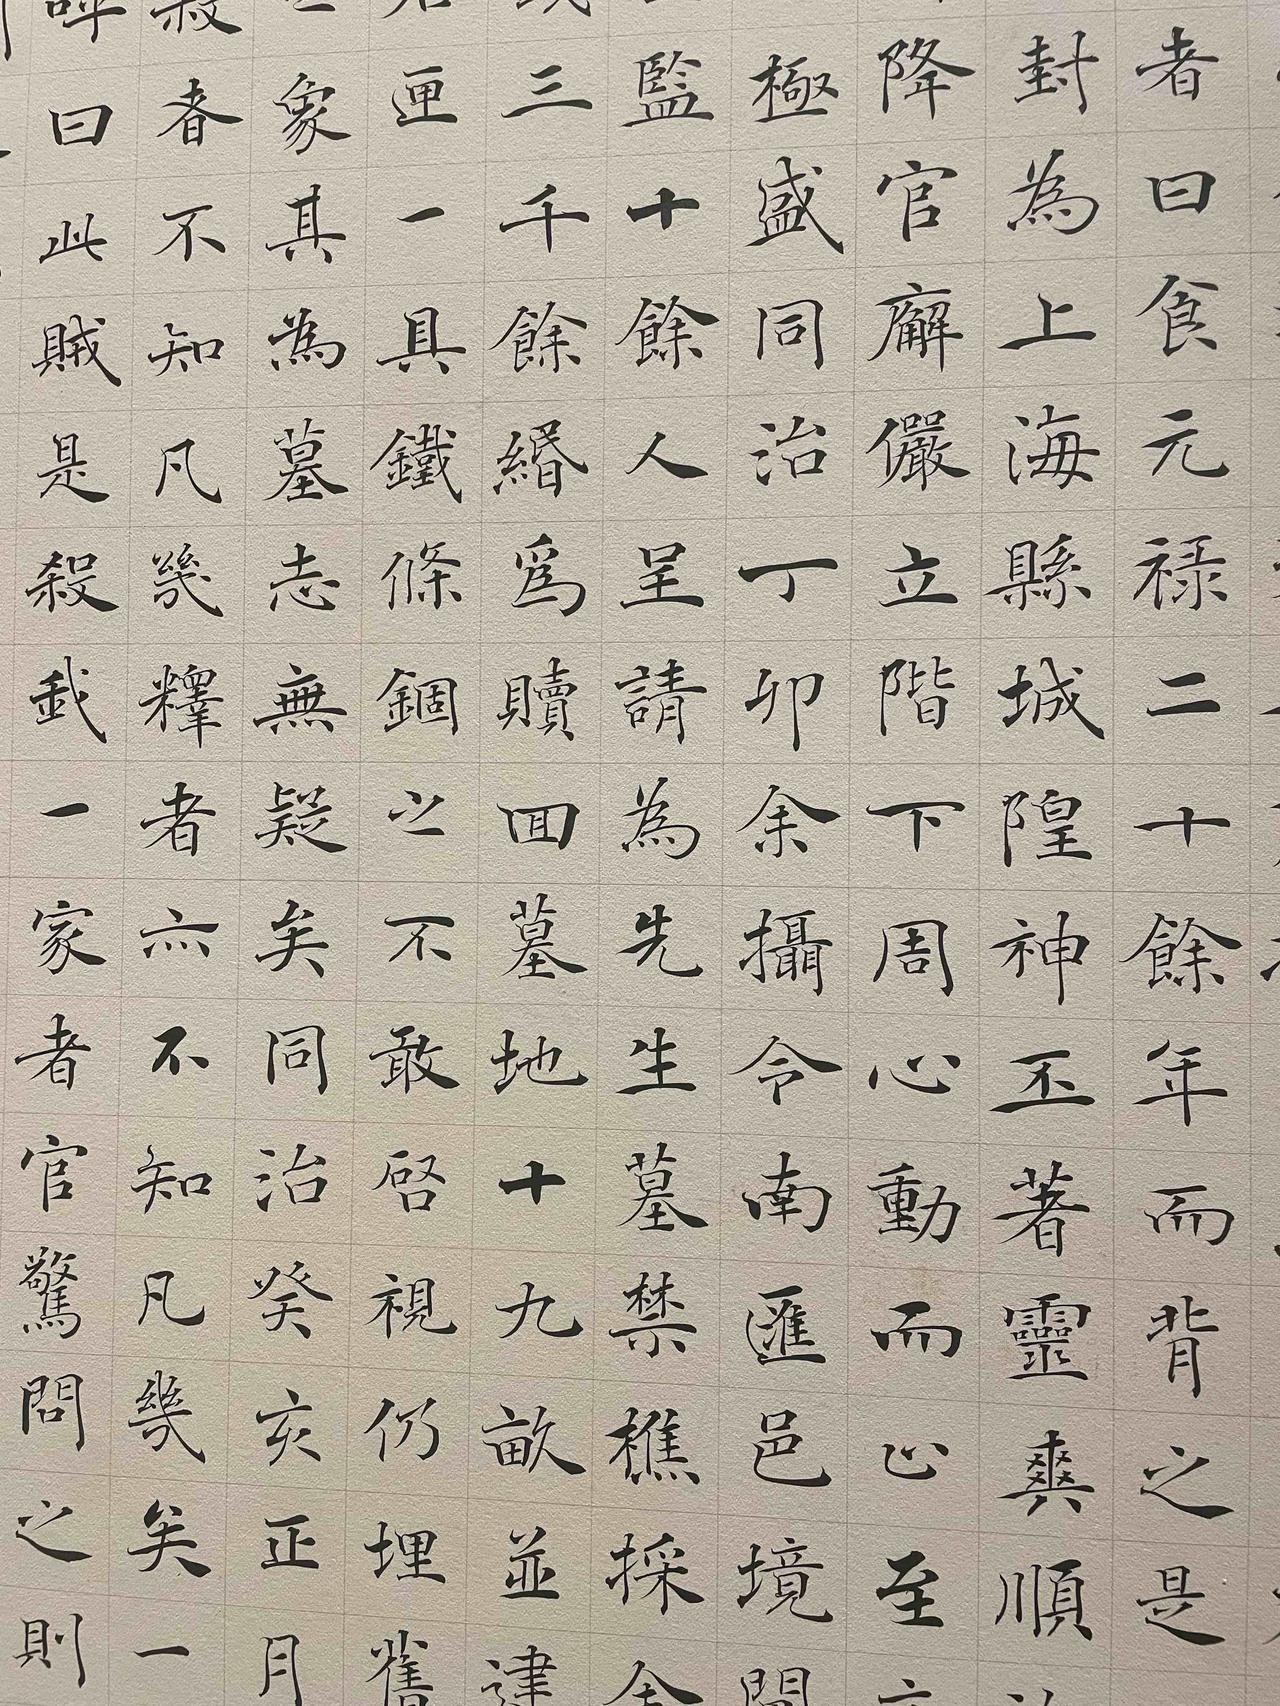 者曰食元禄二十餘年而背之是
封為上海縣城隍神丕著靈爽順
降官廨儼立階下周心動而心至
極盛同治丁卯余攝令南匯邑境
監十餘人呈請為先生墓禁樵採
三千餘緡爲贖回墓地十九畝並建
匣一具鐵條錮之不敢啓視仍埋舊
象其為墓志無疑矣同治癸亥正月
者不知凡幾釋者亦不知凡幾矣一
曰此賊是殺我一家者官驚問之則